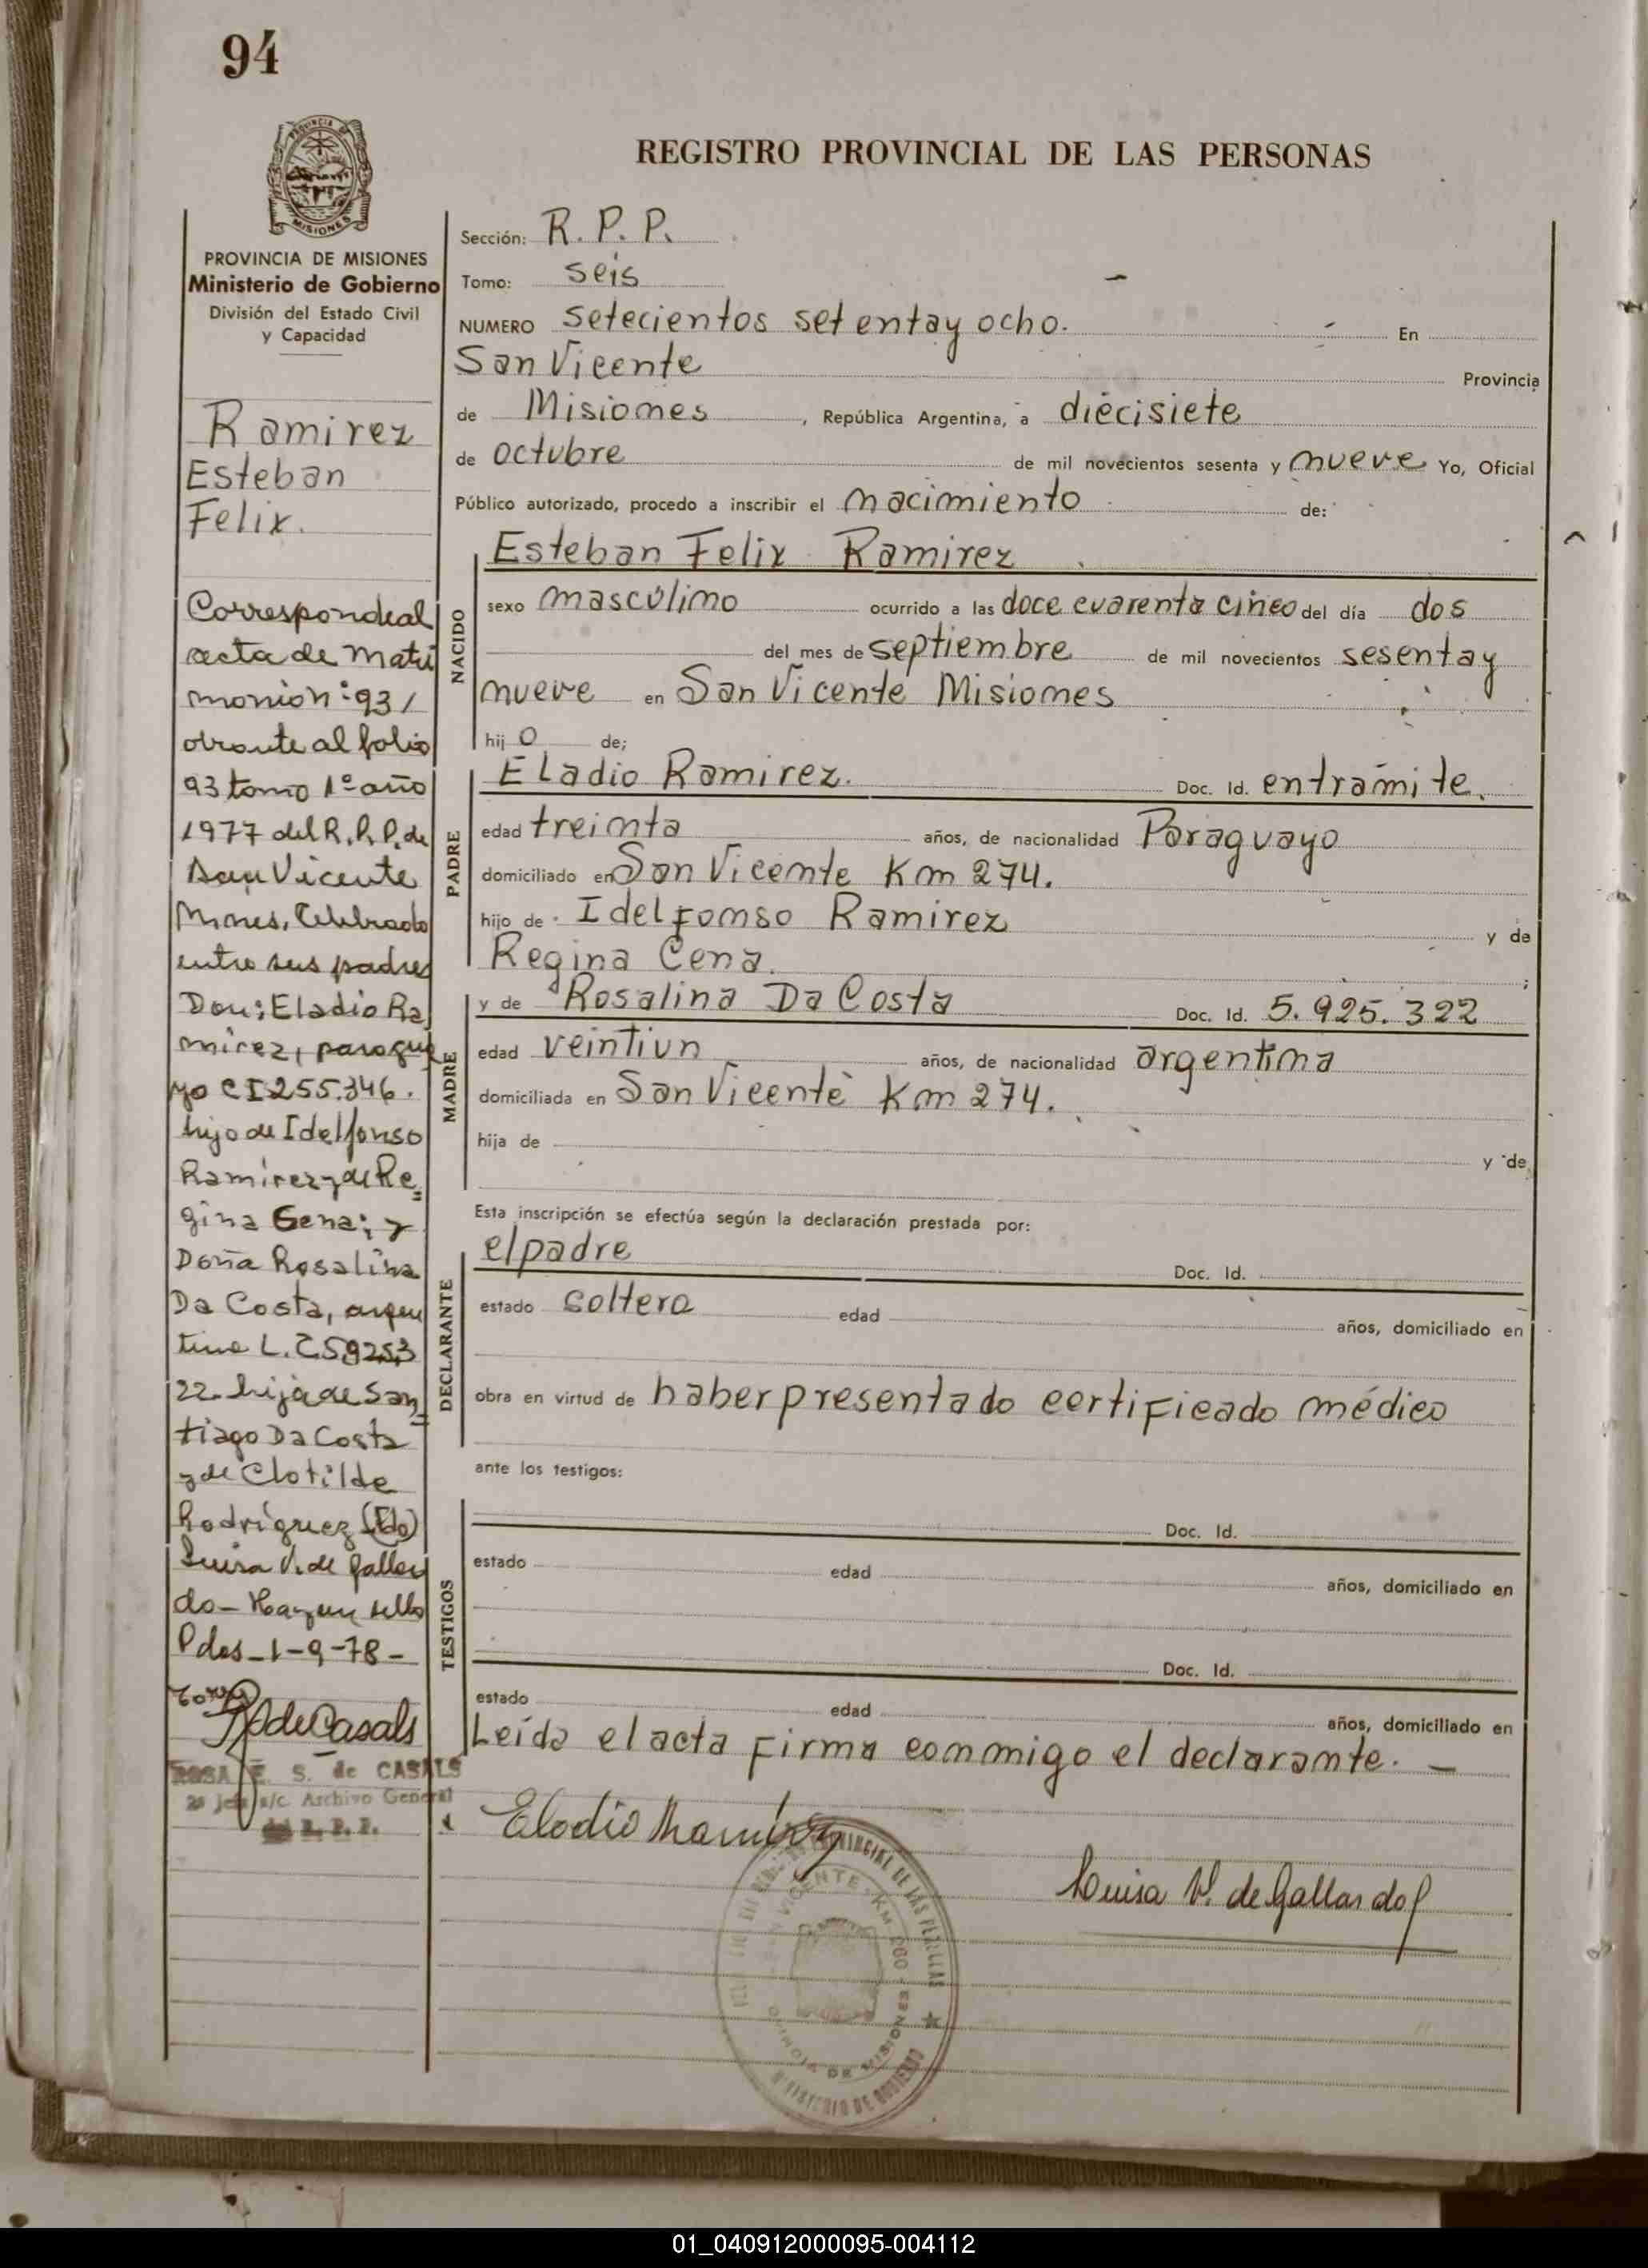 94
PROVINCIA DE MISIONES
Ministerio de Gobierno
División del Estado Civil
y Capacidad
Ramirez
Esteban
Felix.
Correspondeal
acta de Matri
monio nº:93/
obrante al folio
93 tomo 1º año
1977 del R.P.P. de
San Vicente
Mnes, Celebrado
entre sus padres
Don: Eladio Ra
mirez, paragua
yo C I 255.346.
hijo de Idelfonso
Ramirez y de Re=
gina Gena; y
Doña Rosalina
Da Costa, argen
tina L.C.59253
22. hija de San=
tiago Da Costa
y de Clotilde
Rodríguez (Fdo)
Luisa V. de Gallar
do - Hay un sello
Pdas - 1-9-78 -
R de Casals
ROSA E. S. de CASALS
2ª Jefa a/c. Archivo General
R. P. P.
REGISTRO PROVINCIAL DE LAS PERSONAS
Sección: R. P. P.
Tomo: seis
NUMERO setecientos setentay ocho. En
San Vicente Provincia
de Misiones, República Argentina, a diecisiete
de octubre de mil novecientos sesenta y nueve Yo, Oficial
Público autorizado, procedo a inscribir el nacimiento de:
NACIDO
Esteban Felix Ramirez
sexo masculino ocurrido a las doce cuarenta cinco del día dos
del mes de septiembre de mil novecientos sesentay
nueve en San Vicente Misiones
hij o de;
PADRE
Eladio Ramirez. Doc. Id. entramite.
edad treinta años, de nacionalidad Paraguayo
domiciliado en San Vicente Km 274.
hijo de Idelfonso Ramirez y de
Regina Cena. ;
MADRE
y de Rosalina Da Costa Doc. Id. 5.925.322
edad veintiun años, de nacionalidad argentina
domiciliada en San Vicente Km 274.
hija de y de
Esta inscripción se efectúa según la declaración prestada por:
DECLARANTE
elpadre Doc. Id.
estado soltero edad años, domiciliado en
obra en virtud de haber presentado certificado médico
ante los testigos:
TESTIGOS
Doc. Id.
estado edad años, domiciliado en
Doc. Id.
estado edad años, domiciliado en
Leída el acta firma conmigo el declarante. —
Eladio Ramirez
Luisa V. de Gallardo
PROVINCIAL DE LAS
VICENTE - KM.
DE MISIONES
MINISTERIO DE GOBIERNO
01_040912000095-004112